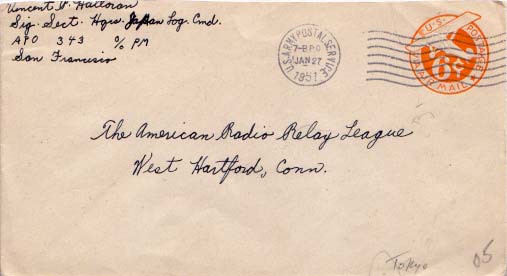 Vincent W. Halloran
Sig. Sect. Hqrs. Japan Log. Cmd.
APO 343 % PM
San Francisco
U.S. ARMY POSTAL SERVICE
7-BPO
JAN 27
1951
U.S. POSTAGE
6¢
VIA AIR MAIL
The American Radio Relay League
West Hartford, Conn.
Tokyo
05